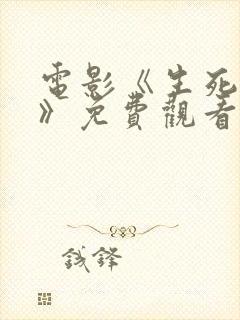 電影《生死
》免費觀看
錢鋒